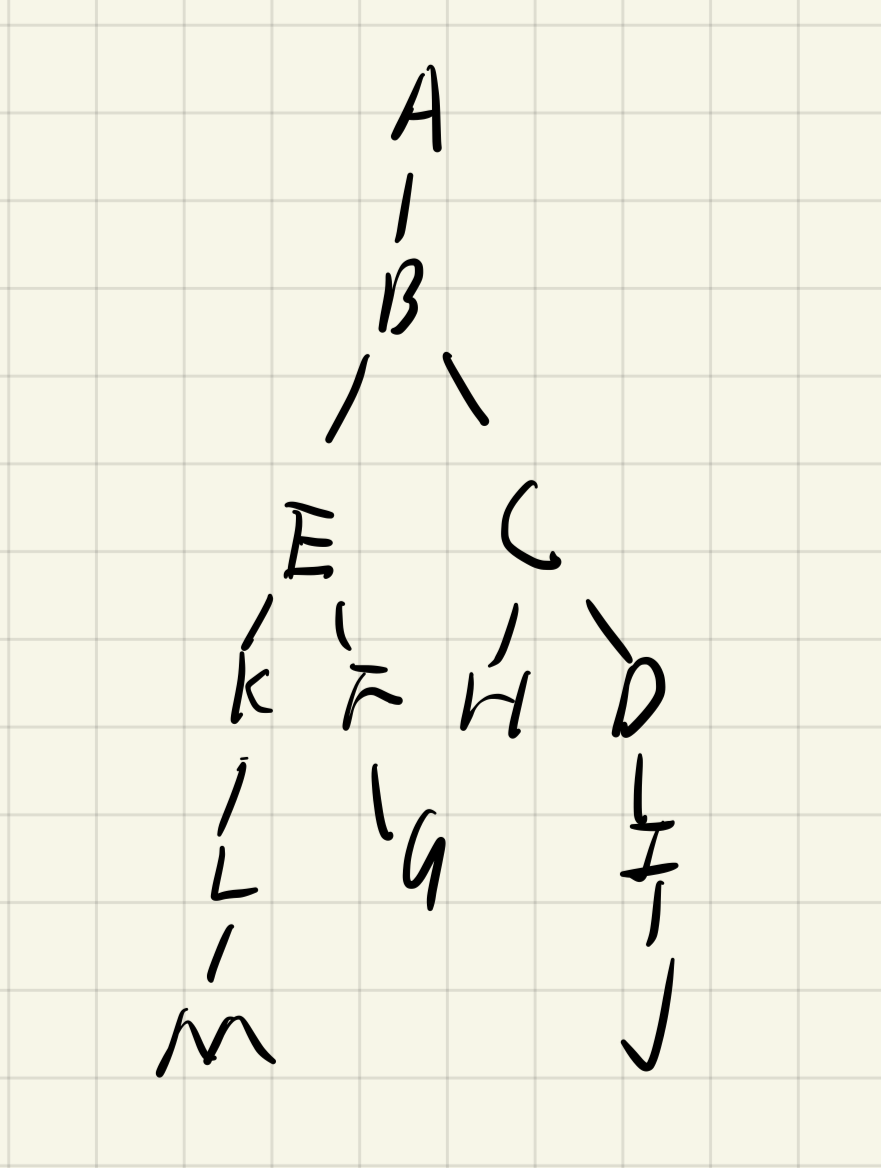 A
B
E C
K F H D
L G I
M J